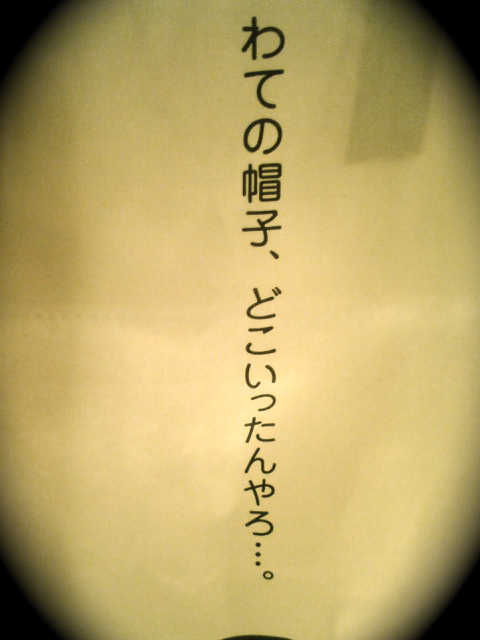 わての帽子、どこいったんやろ…。